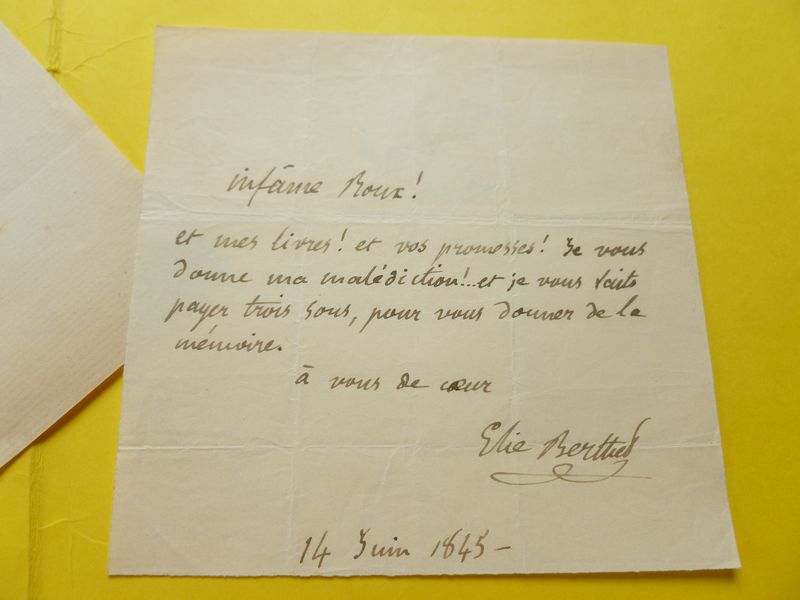 infâme Roux!
et mes livres! et vos promesses! Je vous
donne ma malédiction!... et je vous fais
payer trois sous, pour vous donner de la
mémoire.
à vous de cœur
Elie Berthet
14 Juin 1845 -